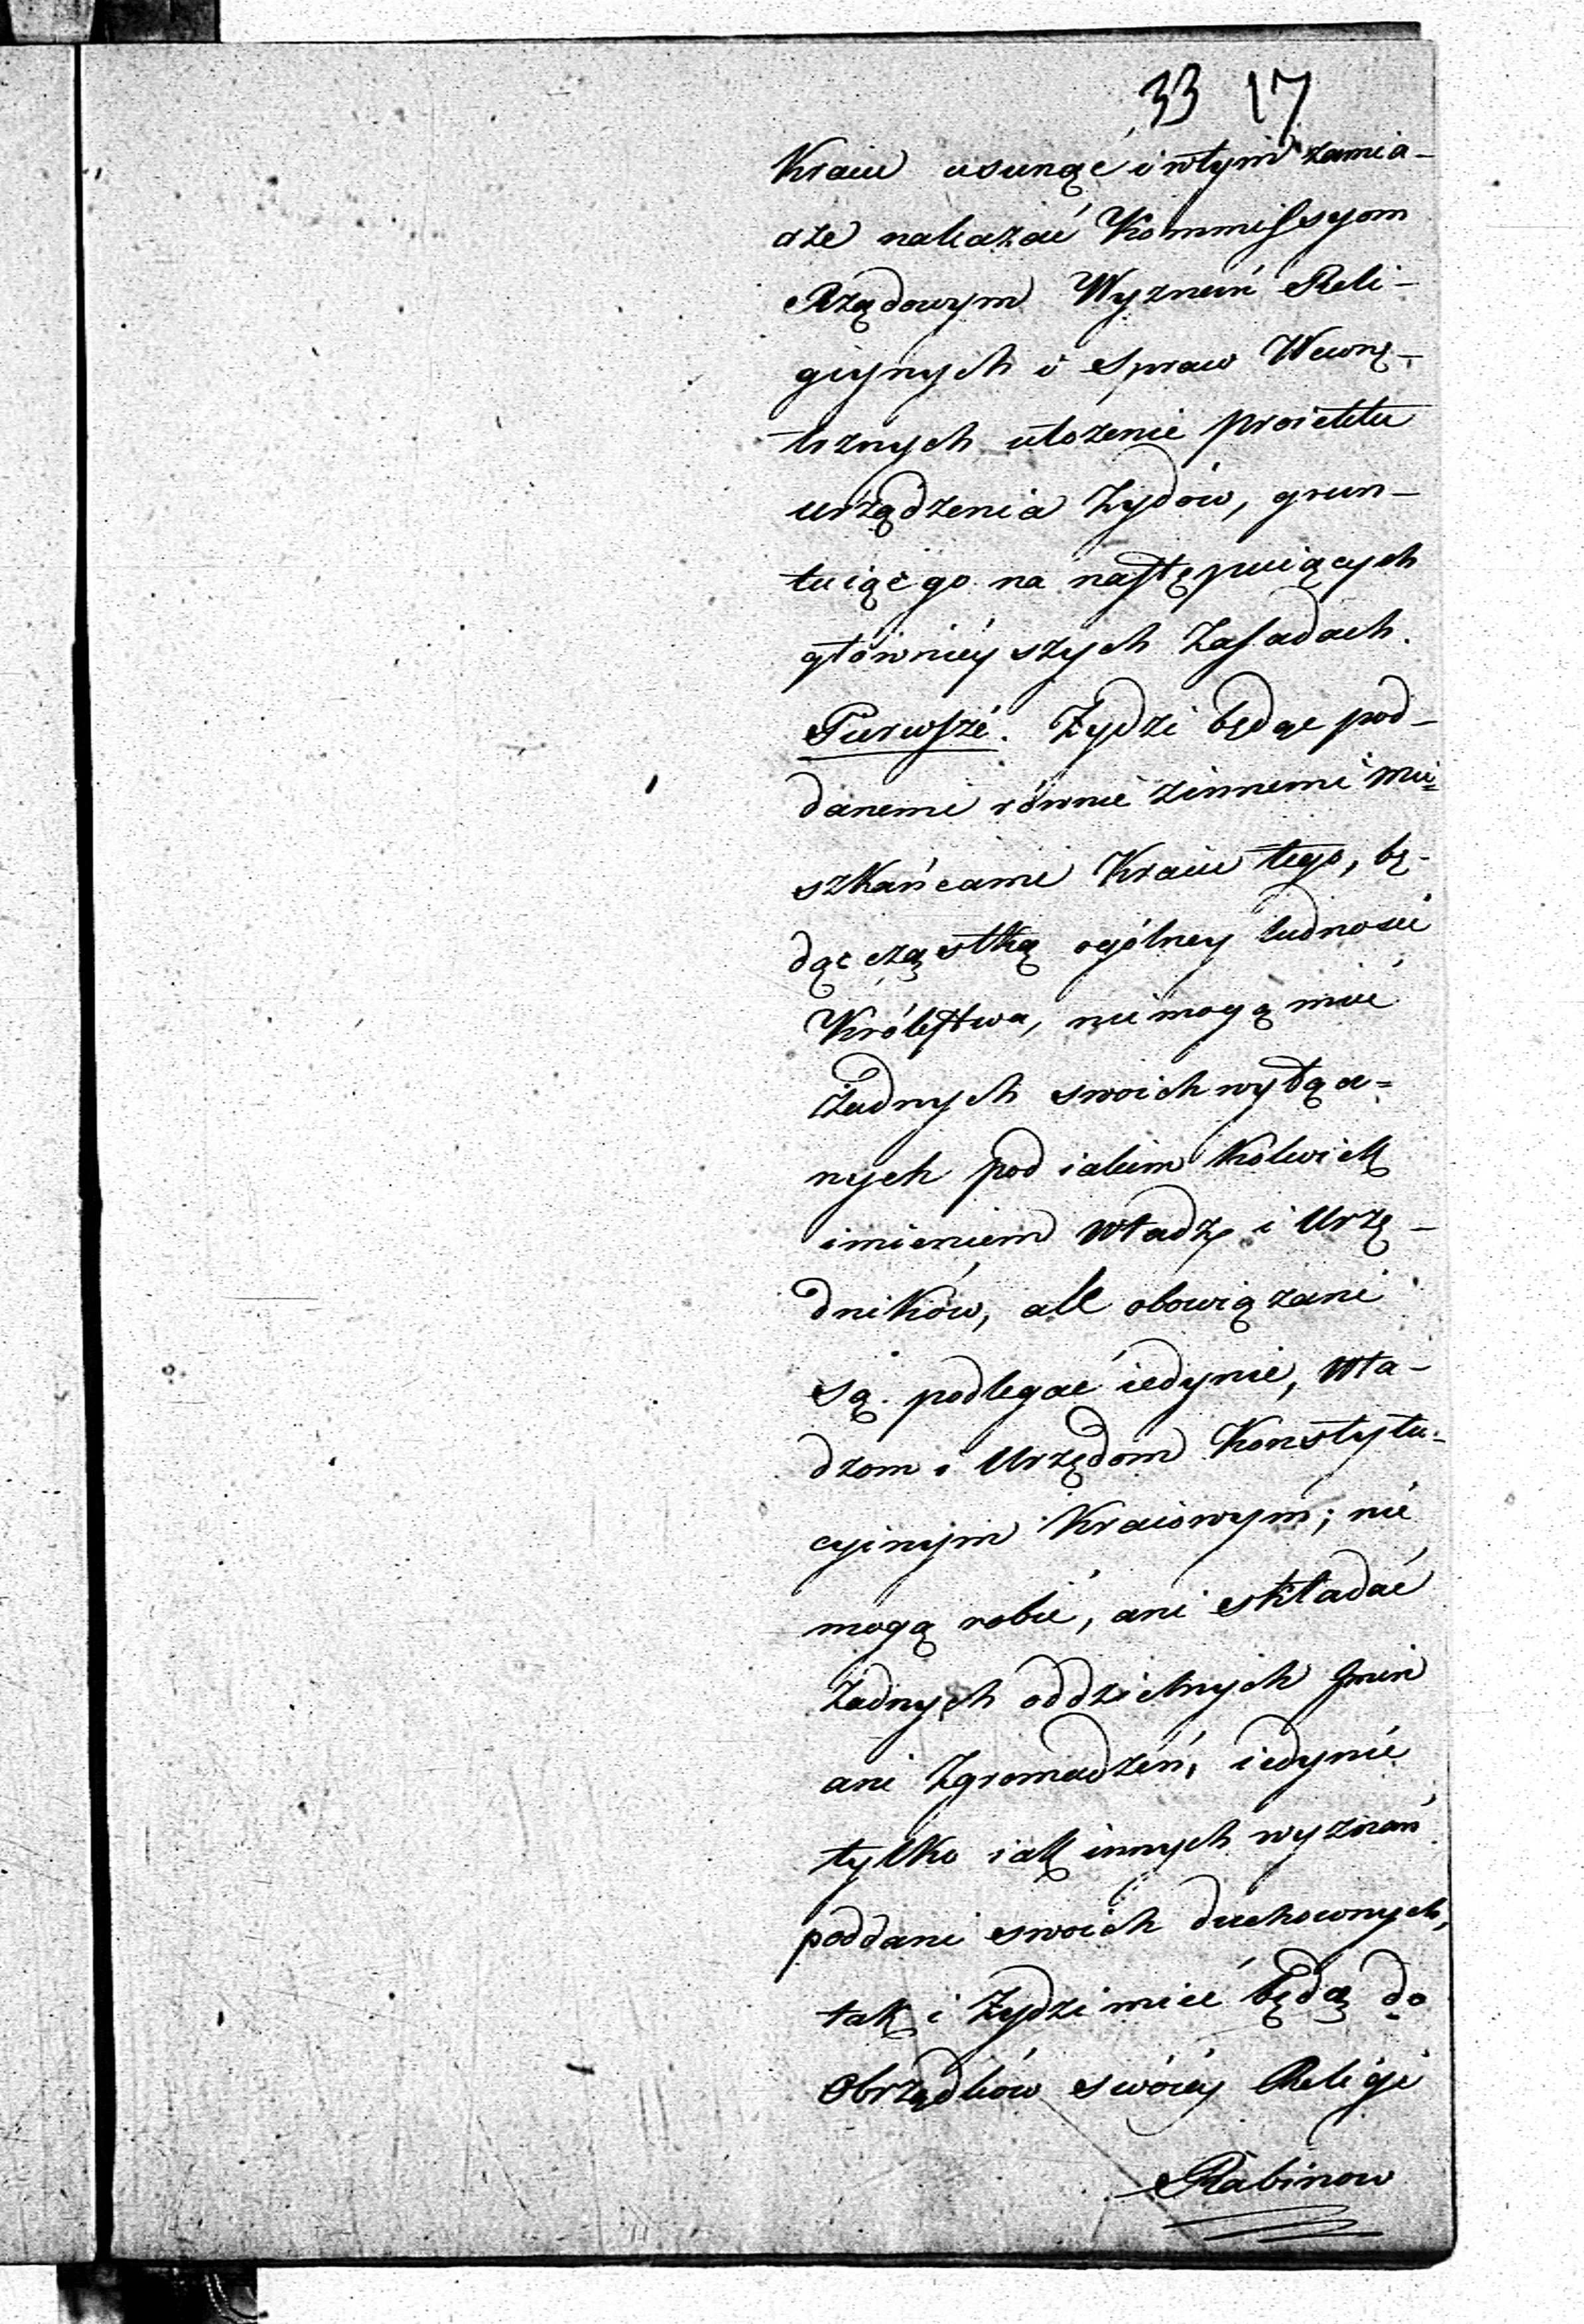 33 17
Kraiu usunąć i w tym zamia-
rze nakazać Kommissyom
Rządowym Wyznań Reli-
giynych i Spraw Wewnę-
trznych ułożenie proiektu
urządzenia Żydów, grun-
tuiącego na następuiących
głównieyszych Zasadach.
Pierwsze. Żydzi będąc pod-
danemi równie z innemi mie=
szkańcami Kraiu tego, bę-
dąc cząstką ogólney ludności
Królestwa, nie mogą mieć
żadnych swoich wyłącz=
nych pod iakim kolwiek
imieniem Władz i Urzę-
dników, ale obowiązani
są podlegać iedynie, Wła-
dzom i Urzędom Konstytu-
cyinym Kraiowym; nie
mogą robić, ani składać
Żadnych oddzielnych Gmin
ani Zgromadzeń, iedynie
tylko iak innych wyznań
poddani swoich duchownych,
tak i Żydzi mieć będą do
Obrządków swoiéy Religii
Rabinow